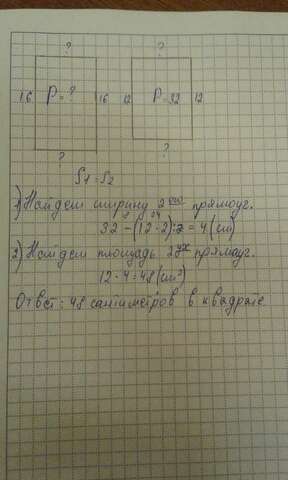 ? ?
16 P=? 16 12 P=32 12
? ?
S1=S2
1) Найдем ширину 2 ой прямоуг.
8 24
32-(12·2):2=4(см)
2) Найдем площадь 2ух прямоуг.
12·4=48(см²)
Ответ: 48 сантиметров в квадрате